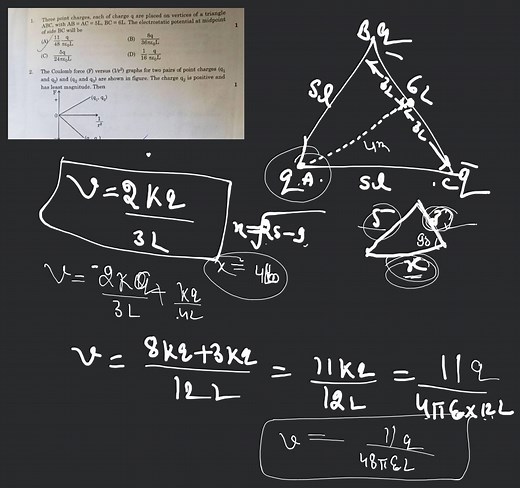 1. Three point charges, each of charge q are placed on vertices of a triangle
ABC, with AB = AC = 5L, BC = 6L. The electrostatic potential at midpoint
of side BC will be
1
(A) 11 q / 48 πε₀L
(B) 8q / 36πε₀L
(C) 5q / 24πε₀L
(D) 1 q / 16 πε₀L
2. The Coulomb force (F) versus (1/r²) graphs for two pair of point charges (q₁
and q₂) and (q₂ and q₃) are shown in figure. The charge q₂ is positive and
has least magnitude. Then
1
F
(q₁, q₂)
0
1/r²
B q
5l
6L
3L
3L
4m
q. A.
5l
.C q
V = 2Kq / 3L
x = √25-9
x = 4
5
3
90
x
V = 2KQ / 3L + Kq / 4L
V = 8Kq + 3Kq / 12L = 11Kq / 12L = 11q / 4πε × 12L
V = 11q / 48πεL